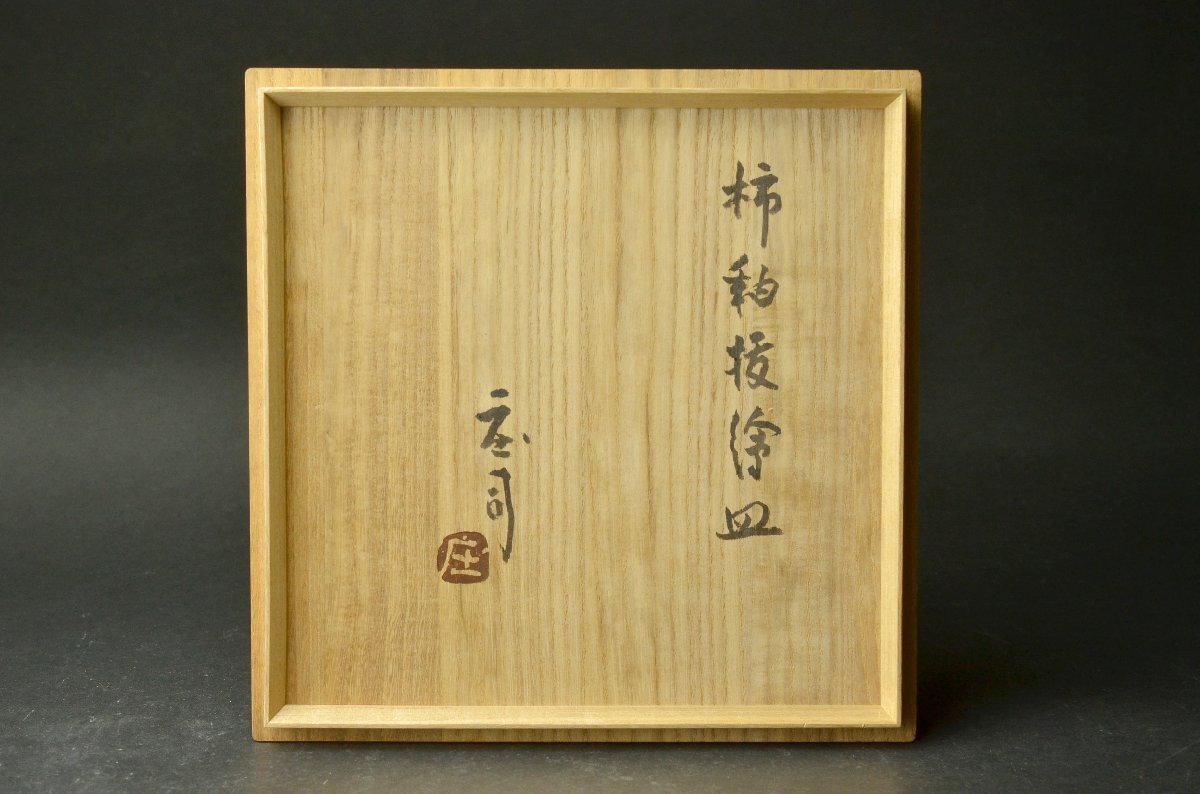 柿釉抜絵皿
庄司
庄